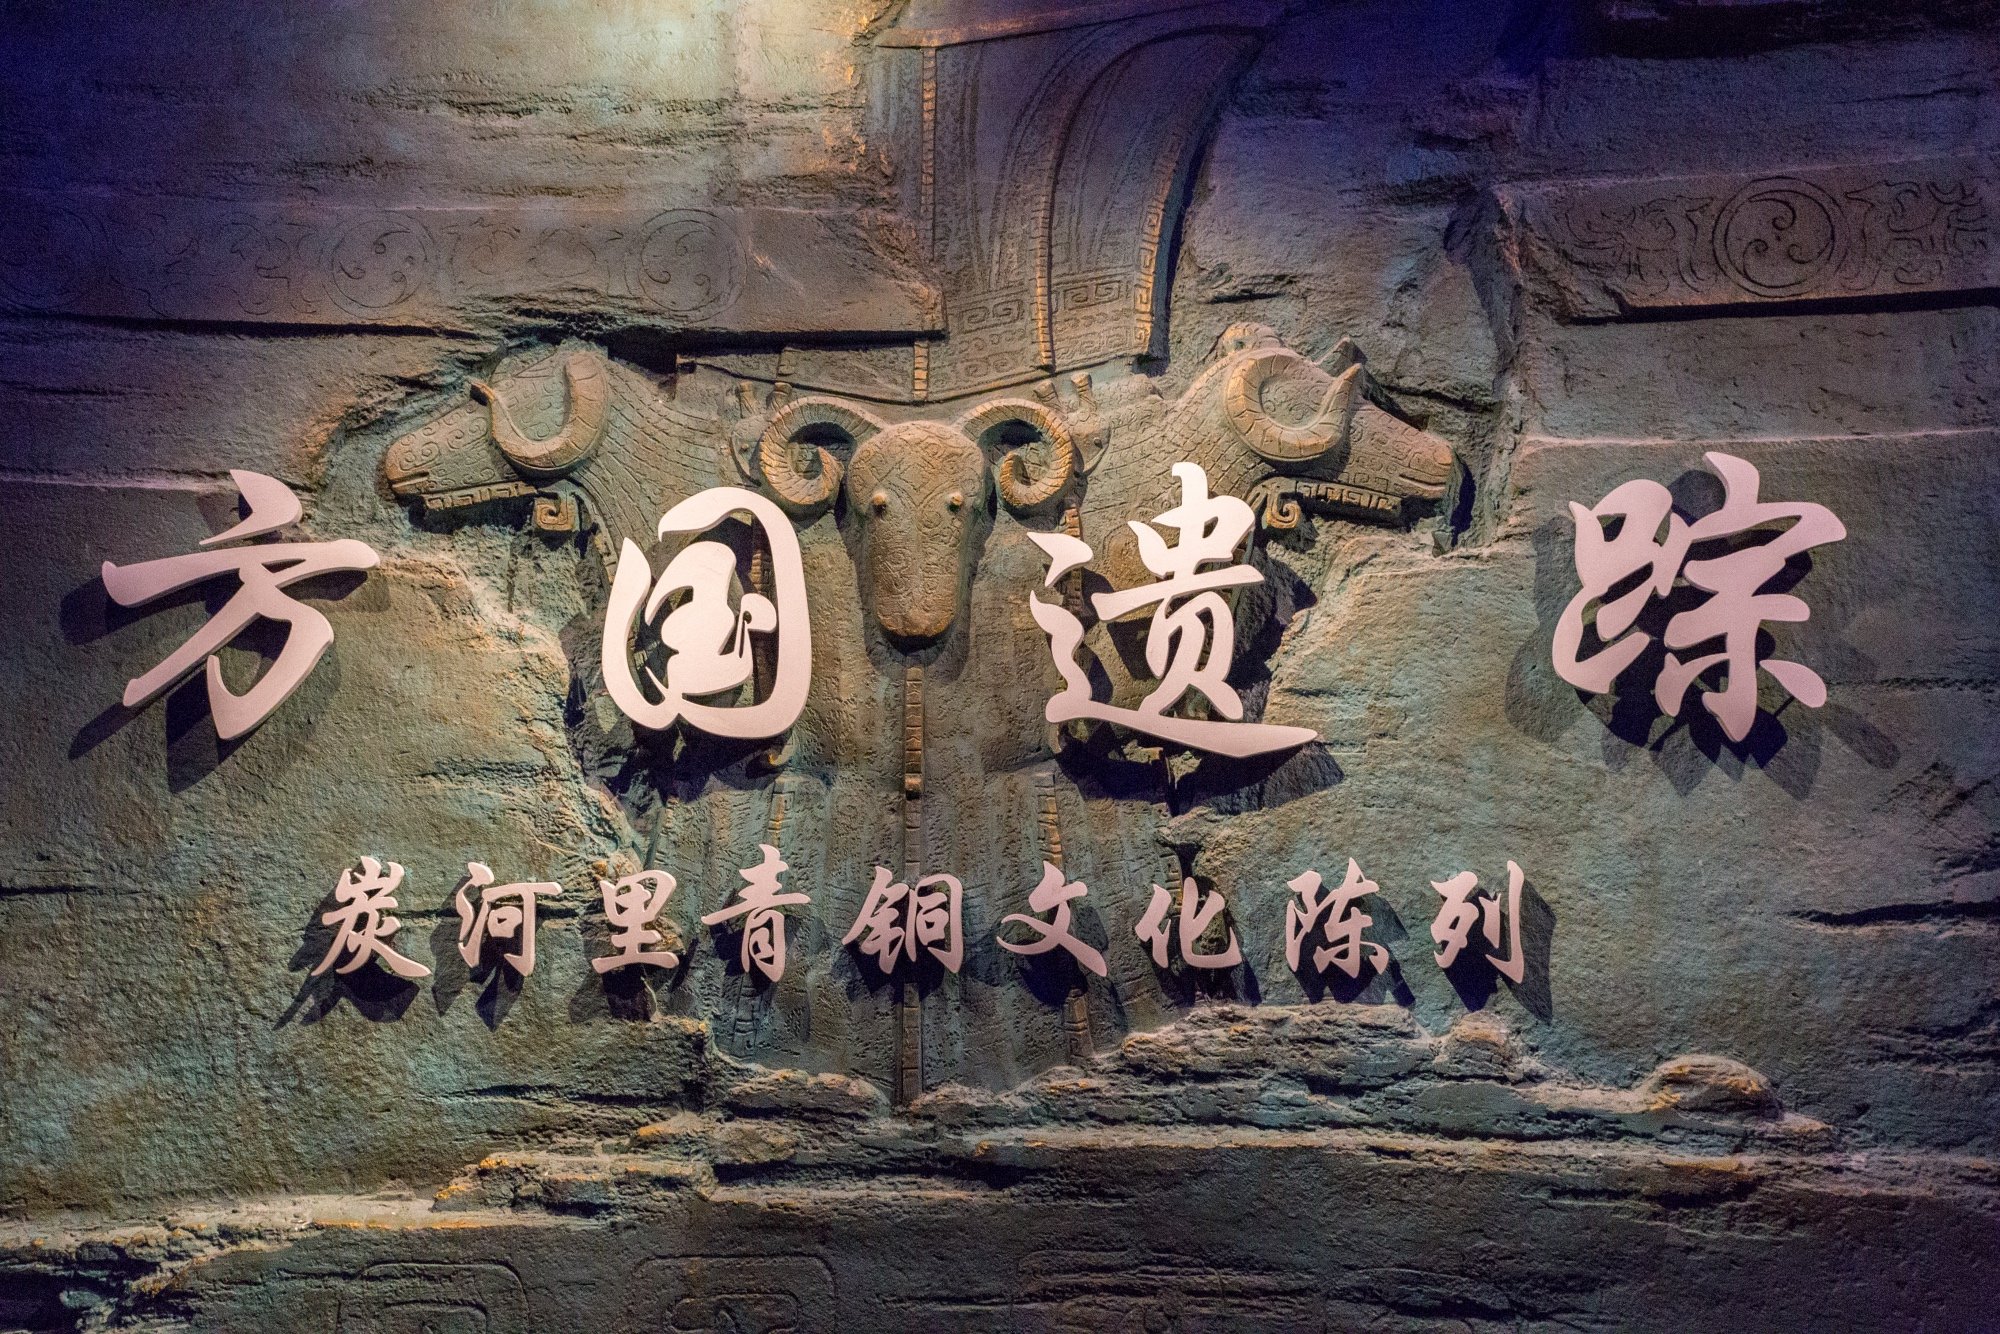 方国遗踪
炭河里青铜文化陈列